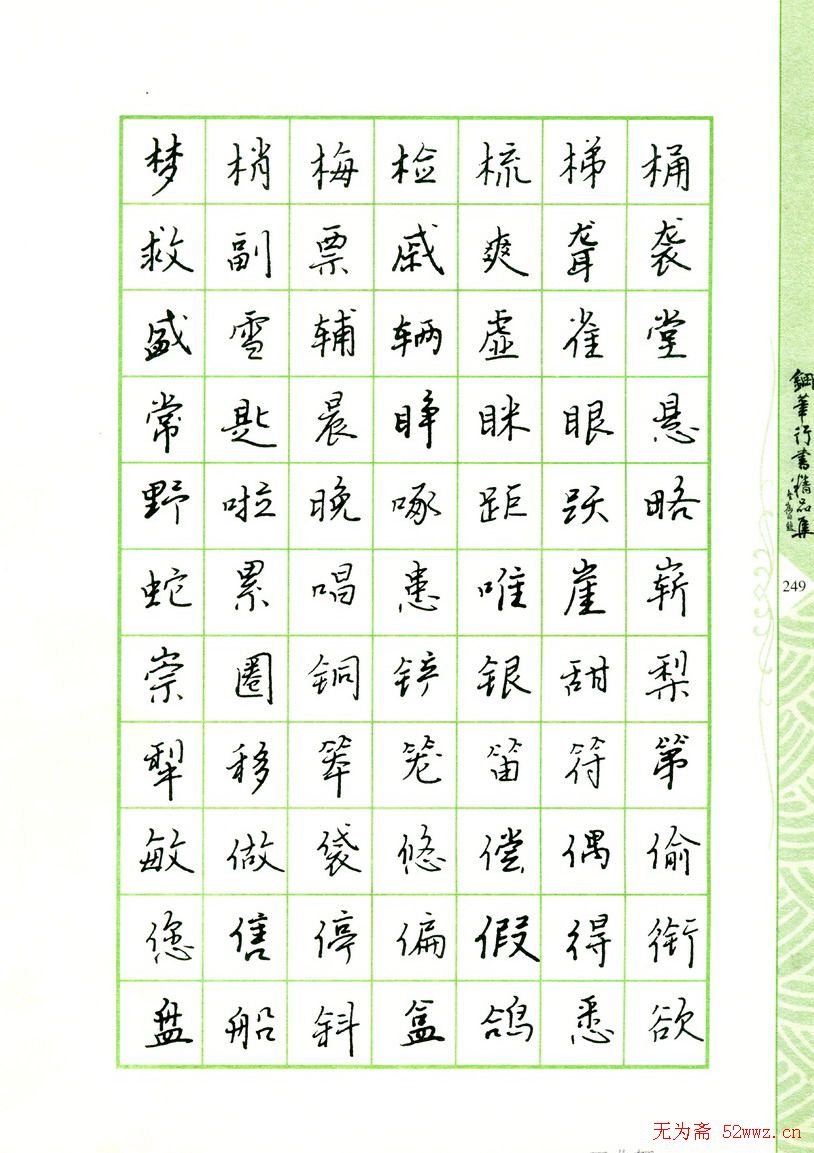 梦梢梅检梳梯桶
救副票戚爽聋袭
盛雪辅辆虚雀堂
常匙晨睁眯眼悬
野啦晚啄距跃略
蛇累唱患唯崖崭
崇圈铜铲银甜梨
犁移笨笼笛符第
敏做袋悠偿偶偷
您售停偏假得衔
盘船斜盒鸽悉欲
鋼筆行書精品集
249
无为斋 52wwz.cn